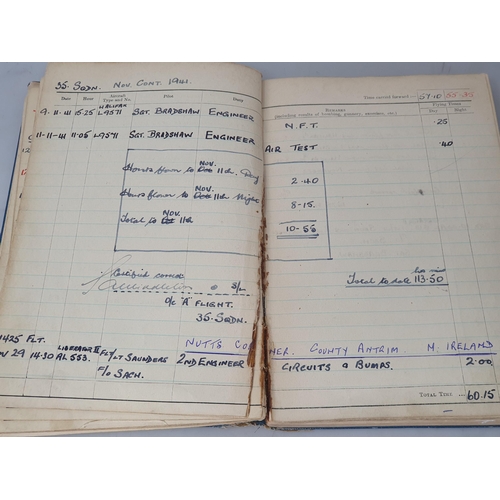 35. SQDN. NOV. CONT. 1941.
Time carried forward:— 57.10 53.35
Date Hour Aircraft Type and No. Pilot Duty Remarks (including results of bombing, gunnery, exercises, etc.) Flying Times Day Night
HALIFAX
9.11.41 15.25 L9571 SGT. BRADSHAW ENGINEER N.F.T. .25
11-11-41 11.05 L9571 SGT. BRADSHAW ENGINEER AIR TEST .40
Hours flown to NOV. 11th. Day 2.40
Hours flown to NOV. 11th Night 8-15.
Total to NOV. 11th 10-55
Certified correct
S/Ldr
O/C "A" FLIGHT.
35. SQDN.
Total to date hrs min 113.50
1425 FLT. NUTTS CORNER. COUNTY ANTRIM N. IRELAND
NOV 29 14.30 LIBERATOR II AL 553. FLT/LT SAUNDERS 2ND ENGINEER CIRCUITS & BUMPS. 2.00
F/O SACH.
TOTAL TIME ... 60.15